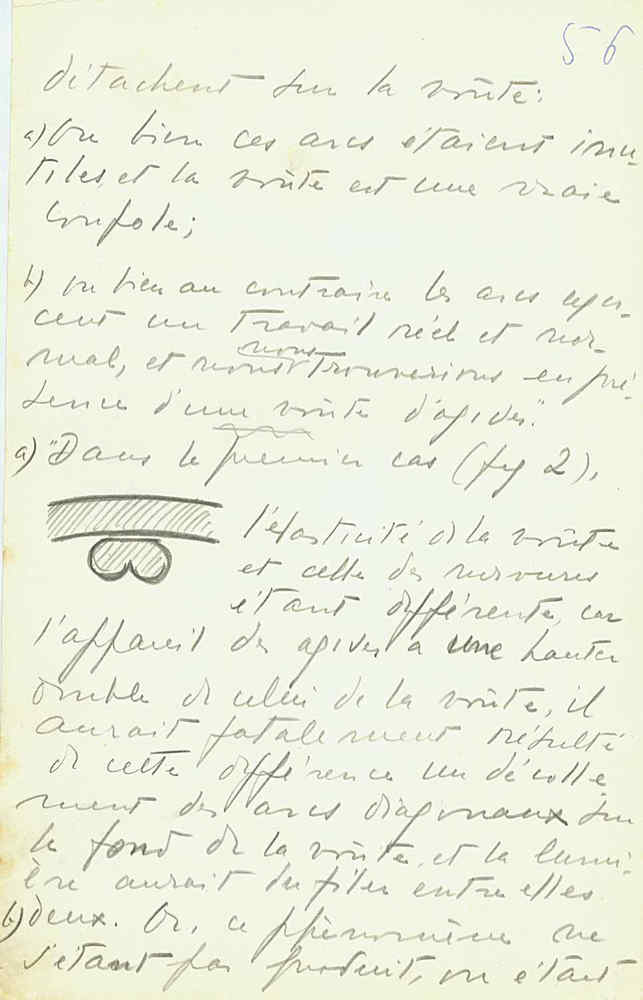 56
détachent sur la voûte:
a) Ou bien ces arcs étaient inu-
tiles, et la voûte est une vraie
coupole;
b) ou bien au contraire les arcs exer-
cent un travail réel et nor-
mal, et nous trouverions en pré-
nous
sence d'une voûte d'ogives".
a) "Dans le premier cas (fig 2),
l'élasticité de la voûte
et celle des nervures
étant différente, car
l'appareil des ogives a une hauteur
double de celui de la voûte, il
aurait fatalement résulté
de cette différence un décolle-
ment des arcs diagonaux sur
le fond de la voûte, et la lumi-
ère aurait du filer entre elles
b) deux. Or, ce phénomène ne
s'étant pas produit, on étant